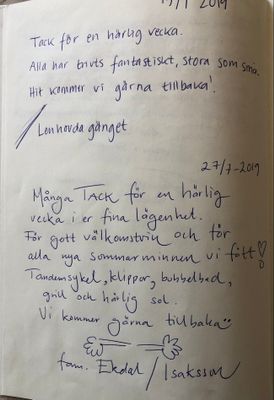 2019
Tack för en härlig vecka.
Alla har trivts fantastiskt, stora som små.
Hit kommer vi gärna tillbaka!
/Lenhovda gänget
27/7-2019
Många TACK för en härlig
vecka i er fina lägenhet.
För gott välkomstvin och för
alla nya sommarminnen vi fått!
Tandemcykel, klippor, bubbelbad,
grill och härlig sol.
Vi kommer gärna tillbaka
fam. Ekdal / Isaksson